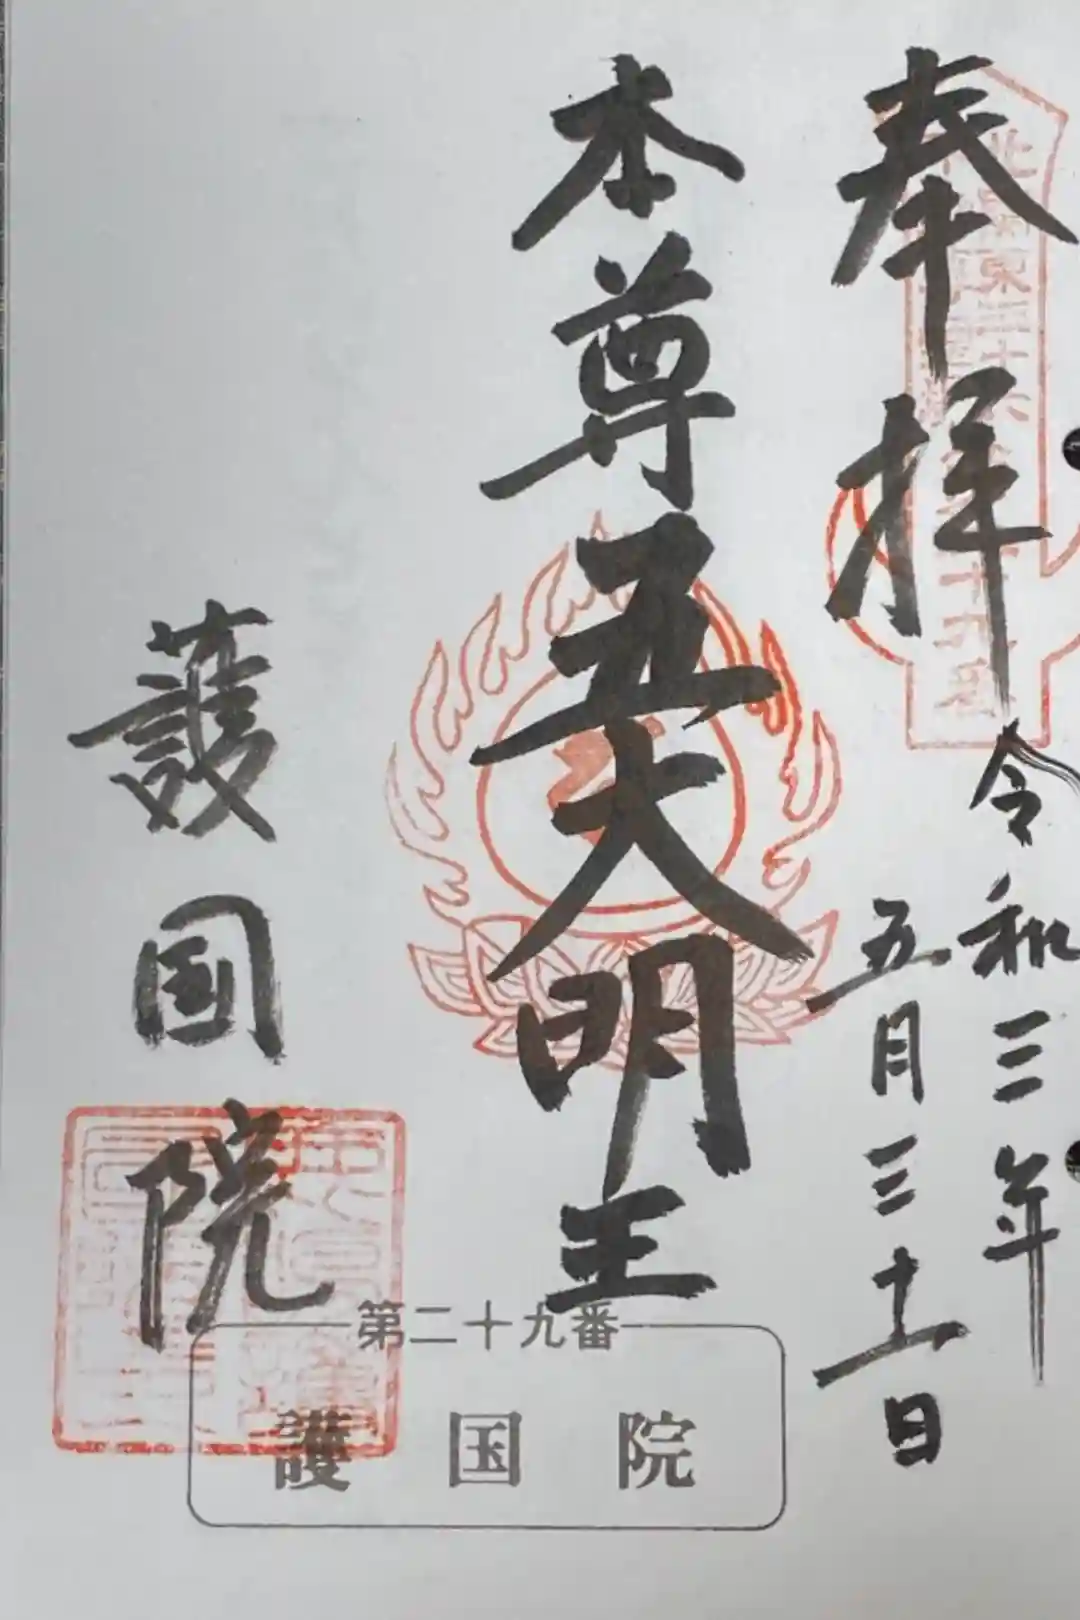 奉拝
令和三年
五月三十一日
本尊五大明王
護国院
北関東三十六
第二十九番
護国院